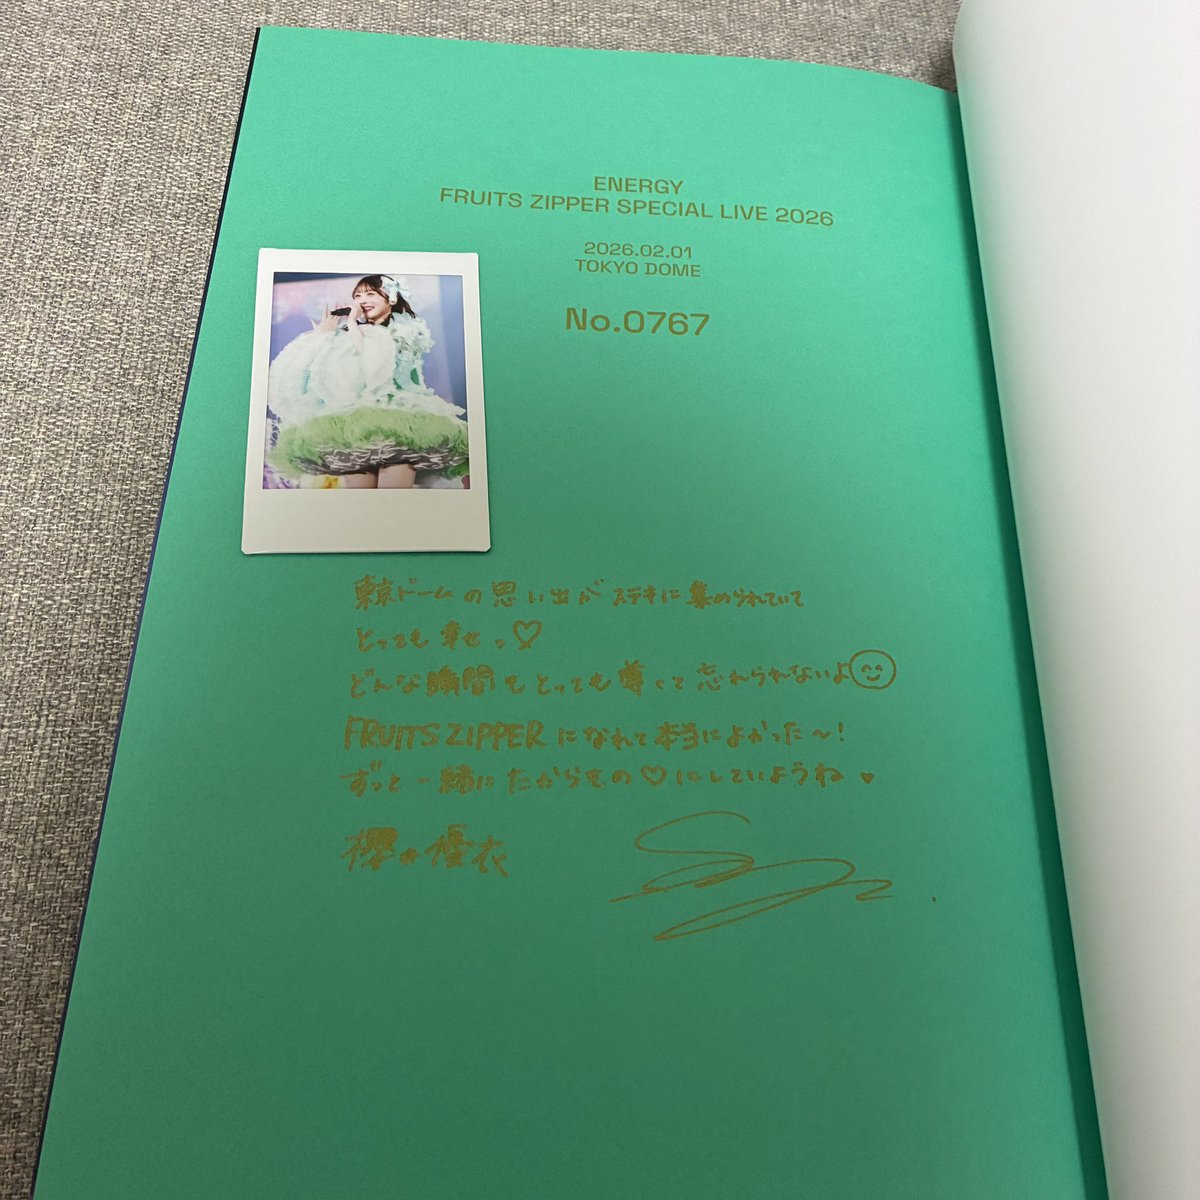 ENERGY
FRUITS ZIPPER SPECIAL LIVE 2026
2026.02.01
TOKYO DOME
No.0767
東京ドームの思い出がステキに集められていて
とっても幸せっ♡
どんな瞬間もとっても尊くて忘れられないよ
FRUITS ZIPPERになれて本当によかった〜!
ずっと一緒にたからもの♡にしていようね♥
櫻井優衣